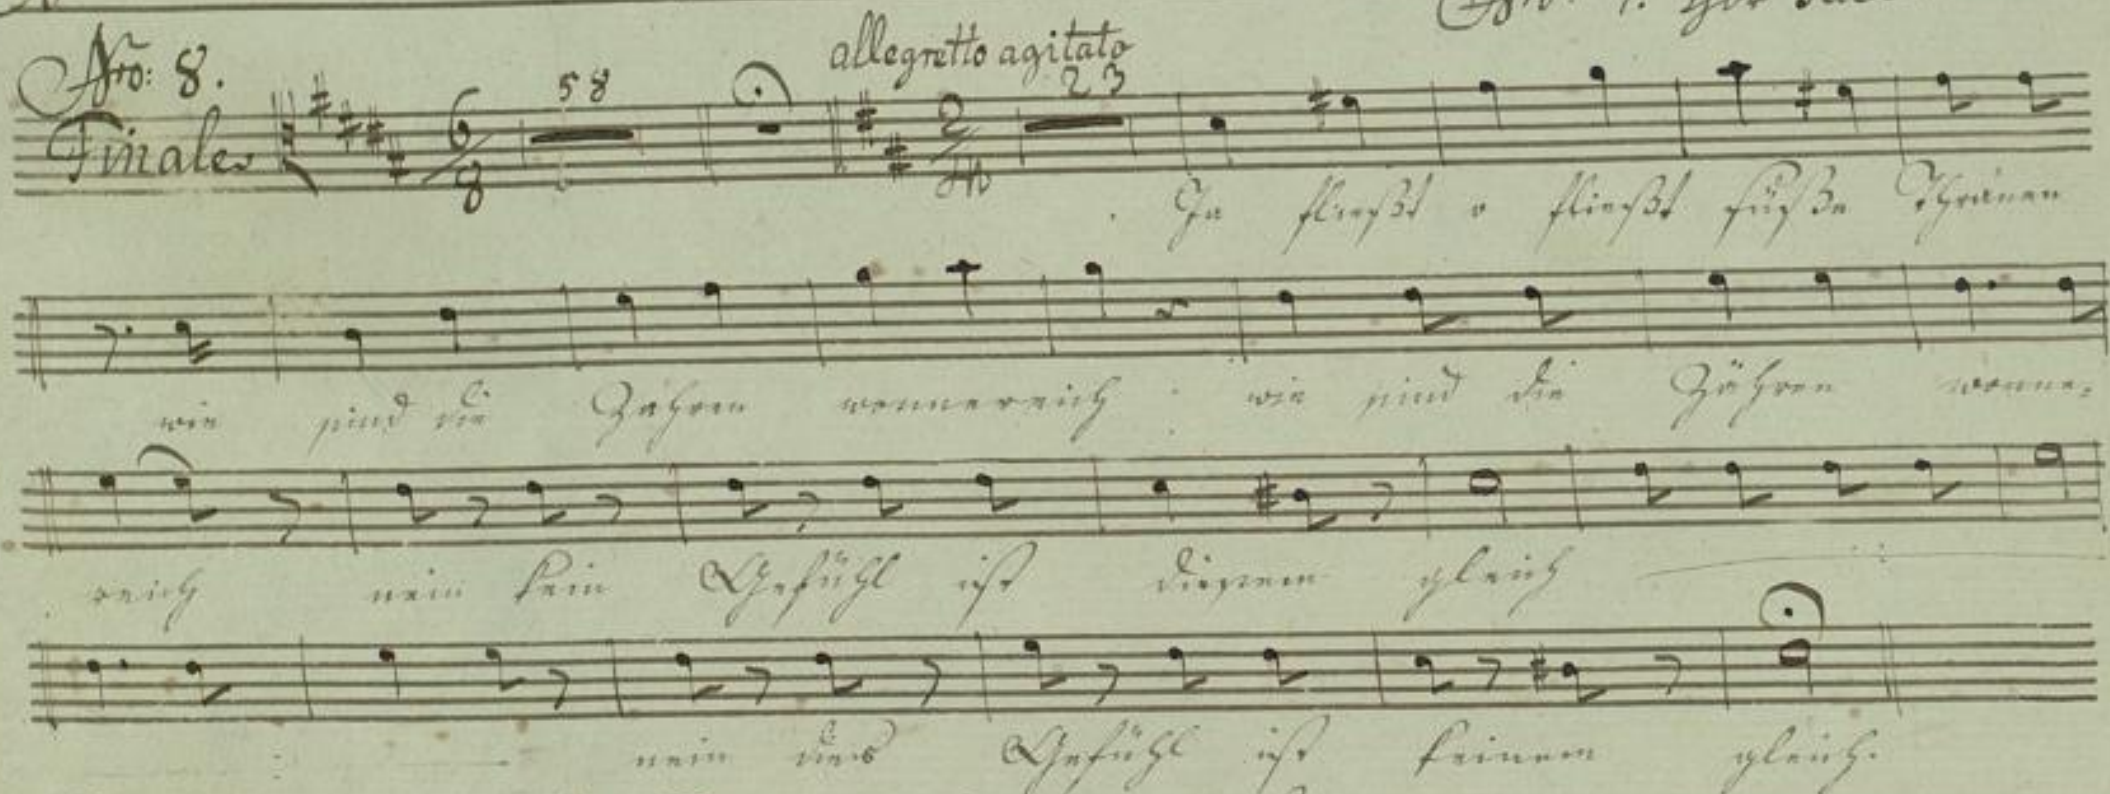 Nro: 8.
allegretto agitato
Finale
6/8 58 2/4 23
Ja fließt o fließt süße Thränen
wie sind die Zähren wonnereich : wie sind die Zähren wonne=
reich nein kein Gefühl ist diesem gleich
nein dies Gefühl ist keinem gleich.